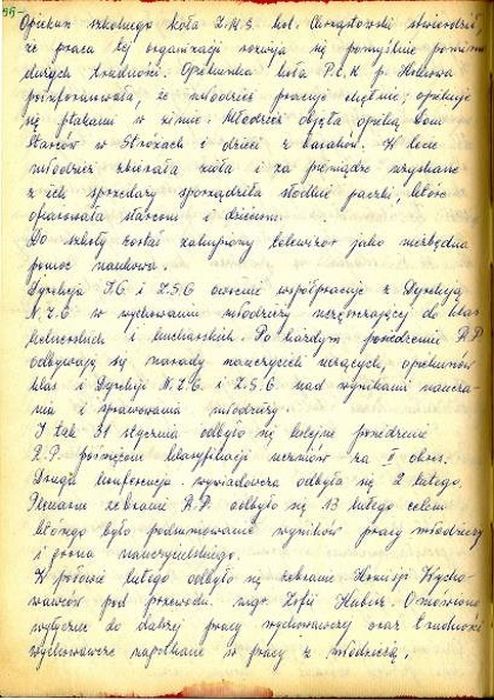 Opiekun szkolnego koła Z.M.S. kol. Chrząstowski stwierdził,
że praca tej organizacji rozwija się pomyślnie pomimo
dużych trudności. Opiekunka koła P.C.K p.
poinformowała, że młodzież pracuje chętnie; opiekuje
się ptakami w zimie. Młodzież objęła opieką Dom
Starców w Stróżach i dzieci z baraków. W lecie
młodzież zbierała zioła i za pieniądze uzyskane
z ich sprzedaży sporządziła słodkie paczki, które
ofiarowała starcom i dzieciom.
Do szkoły został zakupiony telewizor jako niezbędna
pomoc naukowa.
Dyrekcja T.G i Z.S.G owocnie współpracuje z Dyrekcją
N.Z.G w wychowaniu młodzieży uczęszczającej do klas
kelnerskich i kucharskich. Po każdym posiedzeniu R.P
odbywają się narady nauczycieli uczących, opiekunów
klas i Dyrekcji N.Z.G. i Z.S.G nad wynikami naucza-
nia i sprawowania młodzieży.
I tak 31 stycznia odbyło się kolejne posiedzenie
R.P. poświęcone klasyfikacji uczniów za II okres.
Druga konferencja wywiadowcza odbyła się 2 lutego.
Plenarne zebranie R.P. odbyło się 13 lutego celem
którego było podsumowanie wyników pracy młodzieży
i grona nauczycielskiego.
W połowie lutego odbyło się zebranie Komisji Wycho-
wawców pod przewodn. mgr. Zofii Omówiono
wytyczne do dalszej pracy wychowawczej oraz trudności
wychowawcze napotkane w pracy z młodzieżą.